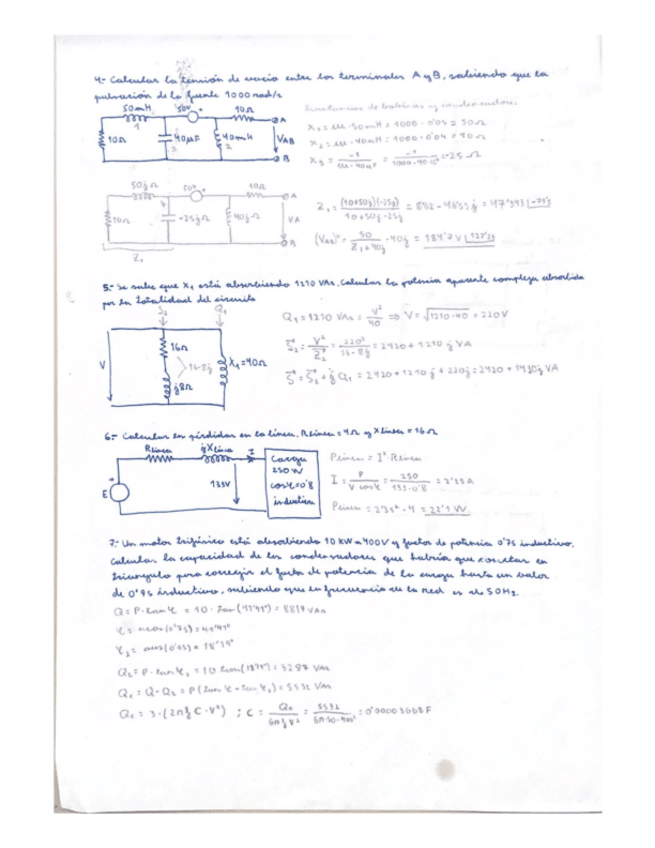 4.- Calcular la tensión de vacío entre los terminales A y B, sabiendo que la
pulsación de la fuente 1000 rad/s
50mH 50V 10Ω A
10Ω 1 40µF 3 40mH 2 VAB B
Reactancias de bobinas y condensadores.
X1 = ω·50mH = 1000·0'05 = 50Ω
X2 = ω·40mH = 1000·0'04 = 40Ω
X3 = -1/ω·40µF = -1/1000·40·10⁻⁶ = -25Ω
50jΩ 50V 10Ω A
10Ω -25jΩ 40jΩ VA B
Z1
Z1 = (10+50j)(-25j)/10+50j-25j = 8'62-46'55j = 47'343
(VAB)º = 50/Z1+40j ·40j = 184'7 V
5.- Se sabe que X1 está absorbiendo 1210 VAr. Calcular la potencia aparente compleja absorbida
por la totalidad del circuito
S2 Q1
V 16Ω 16-8j X1=40Ω
j8Ω
Q1 = 1210 VAr = V²/40 ⇒ V = √1210·40 = 220V
S2 = V²/Z2* = 220²/16-8j = 2420+1210j VA
S = S2 + jQ1 = 2420+1210j+1210j = 2420+2420j VA
6.- Calcular las pérdidas en la línea. Rlínea = 4Ω y Xlínea = 16Ω
Rlínea jXlínea I
E 133V Carga
250W
cosφ=0'8
inductiva
Plínea = I²·Rlínea
I = P/V cosφ = 250/133·0'8 = 2'35A
Plínea = 2'35²·4 = 22'1 W
7.- Un motor trifásico está absorbiendo 10 kW a 400V y factor de potencia 0'75 inductivo.
Calcular la capacidad de los condensadores que habría que conectar en
triángulo para corregir el factor de potencia de la carga hasta un valor
de 0'95 inductivo, sabiendo que la frecuencia de la red es de 50Hz.
Q = P·tanφ = 10·tan(41'41º) = 8819 VAr
φ = acos(0'75) = 41'41º
φ2 = acos(0'95) = 18'19º
Q2 = P·tanφ2 = 10 tan(18'19º) = 3287 VAr
Qc = Q-Q2 = P(tanφ-tanφ2) = 5532 VAr
Qc = 3·(2πfC·V²) ; C = Qc/6πfV² = 5532/6π·50·400² = 0'00003668F